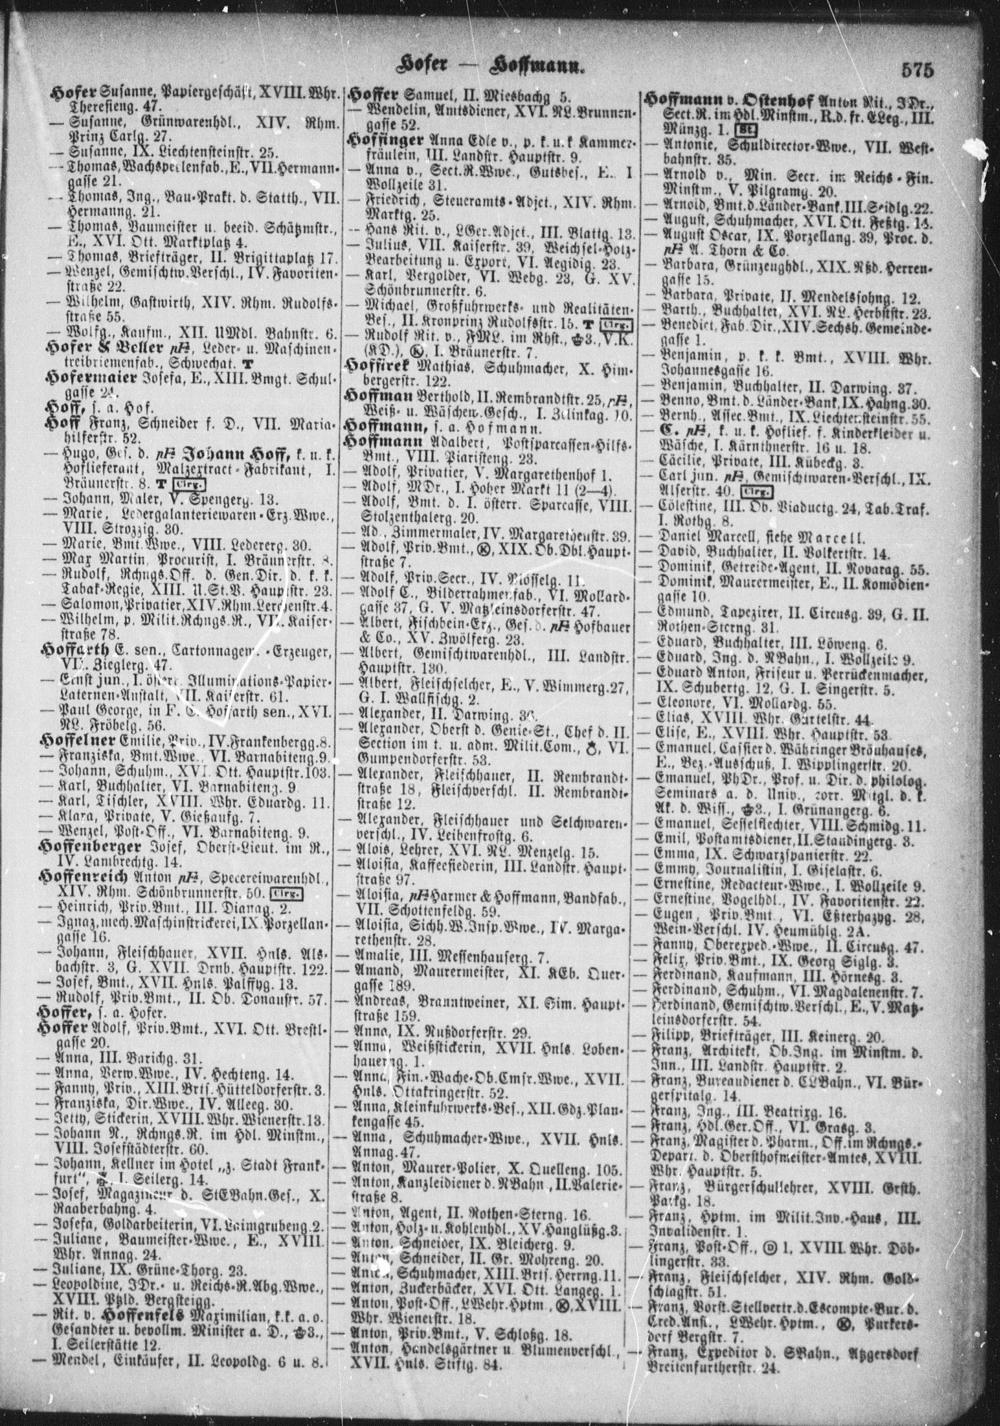 Hofer — Hoffmann.
575
Hofer Susanne, Papiergeschäft, XVIII. Whr.
Theresieng. 47.
— Susanne, Grünwarenhdl., XIV. Rhm.
Prinz Carlg. 27.
— Susanne, IX. Liechtensteinstr. 25.
— Thomas, Wachsperlenfab., E., VII. Hermann-
gasse 21.
— Thomas, Ing., Bau-Prakt. d. Statth., VII.
Hermanng. 21.
— Thomas, Baumeister u. beeid. Schätzmstr.,
E., XVI. Ott. Marktplatz 4.
— Thomas, Briefträger, II. Brigittaplatz 17.
— Wenzel, Gemischtw. Verschl., IV. Favoriten-
straße 22.
— Wilhelm, Gastwirth, XIV. Rhm. Rudolfs-
straße 55.
— Wolfg., Kaufm., XII. UMdl. Bahnstr. 6.
Hofer & Beller pH, Leder- u. Maschinen-
treibriemenfab., Schwechat. T
Hofermaier Josefa, E., XIII. Bmgt. Schul-
gasse
Hoff, s. a. Hof.
Hoff Franz, Schneider f. D., VII. Maria-
hilferstr. 52.
— Hugo, Ges. d. pH Johann Hoff, k. u. k.
Hoflieferant, Malzextract-Fabrikant, I.
Bräunerstr. 8. T Clrg.
— Johann, Maler, V. Spengerg. 13.
— Marie, Ledergalanteriewaren-Erz. Wwe.,
VIII. Strozzig. 30.
— Marie, Bmt. Wwe., VIII. Ledererg. 30.
— Max Martin, Procurist, I. Bräunerstr. 8.
— Rudolf, Rchngs. Off. d. Gen. Dir. d. k. k.
Tabak-Regie, XIII. U. St. V. Hauptstr. 23.
— Salomon, Privatier, XIV. Rhm. Lerchenstr. 4.
— Wilhelm, p. Milit. Rchngs. R., VII. Kaiser-
straße 78.
Hoffarth E. sen., Cartonnagew.-Erzeuger,
VII. Zieglerg. 47.
— Ernst jun., I. österr. Illuminations-Papier-
Laternen-Anstalt, VII. Kaiserstr. 61.
— Paul George, in F. E. Hoffarth sen., XVI.
NL. Fröbelg. 56.
Hoffelner Emilie, Priv., IV. Frankenbergg. 8.
— Franziska, Bmt. Wwe., VI. Barnabiteng. 9.
— Johann, Schuhm., XVI. Ott. Hauptstr. 103.
— Karl, Buchhalter, VI. Barnabiteng. 9.
— Karl, Tischler, XVIII. Whr. Eduardg. 11.
— Klara, Private, V. Gießaufg. 7.
— Wenzel, Post-Off., VI. Barnabiteng. 9.
Hoffenberger Josef, Oberst-Lieut. im R.,
IV. Lambrechtg. 14.
Hoffenreich Anton pH, Specereiwarenhdl.,
XIV. Rhm. Schönbrunnerstr. 50. Clrg.
— Heinrich, Priv. Bmt., III. Dianag. 2.
— Ignaz, mech. Maschinstrickerei, IX. Porzellan-
gasse 16.
— Johann, Fleischhauer, XVII. Hnls. Als-
bachstr. 3, G. XVII. Drnb. Hauptstr. 122.
— Josef, Bmt., XVII. Hnls. Palffyg. 13.
— Rudolf, Priv. Bmt., II. Ob. Donaustr. 57.
Hoffer, s. a. Hofer.
Hoffer Adolf, Priv. Bmt., XVI. Ott. Brestl-
gasse 20.
— Anna, III. Barichg. 31.
— Anna, Verw. Wwe., IV. Hechteng. 14.
— Fanny, Priv., XIII. Brts. Hütteldorferstr. 3.
— Franziska, Dir. Wwe., IV. Alleeg. 30.
— Jetty, Stickerin, XVIII. Whr. Wienerstr. 13.
— Johann N., Rchngs. R. im Hdl. Minstm.,
VIII. Josefstädterstr. 60.
— Johann, Kellner im Hotel „z. Stadt Frank-
furt", I. Seilerg. 14.
— Josef, Magazineur d. StEBahn. Ges., X.
Raaberbahng. 4.
— Josefa, Goldarbeiterin, VI. Laimgrubeng. 2.
— Juliane, Baumeister-Wwe., E., XVIII.
Whr. Annag. 24.
— Juliane, IX. Grüne-Thorg. 23.
— Leopoldine, JDr.- u. Reichs-R. Abg. Wwe.,
XVIII. Ptzld. Bergsteigg.
— Rit. v. Hoffenfels Maximilian, k.k. a.o.
Gesandter u. bevollm. Minister a. D., 3.,
I. Seilerstätte 12.
— Mendel, Einkäufer, II. Leopoldg. 6 u. 8.
Hoffer Samuel, II. Miesbachg 5.
— Wendelin, Amtsdiener, XVI. NL. Brunnen-
gasse 52.
Hoffinger Anna Edle v., p. k. u. k Kammer-
fräulein, III. Landstr. Hauptstr. 9.
— Anna v., Sect. R. Wwe., Gutsbes., E., I
Wollzeile 31.
— Friedrich, Steueramts-Adjct., XIV. Rhm.
Marktg. 25.
— Hans Rit. v., LGer. Adjct., III. Blattg. 13.
— Julius, VII. Kaiserstr. 39, Weichsel-Holz-
Bearbeitung u. Export, VI. Aegidig. 23.
— Karl, Vergolder, VI. Webg. 23, G. XV.
Schönbrunnerstr. 6.
— Michael, Großfuhrwerks- und Realitäten-
Bes., II. Kronprinz Rudolfsstr. 15. T Clrg.
— Rudolf Rit. v., FML. im Rhst., 3., V.K.
(KD.), I. Bräunerstr. 7.
Hoffirek Mathias, Schuhmacher, X. Him-
bergerstr. 122.
Hoffman Berthold, II. Rembrandtstr. 25, pH,
Weiß- u. Wäschew. Gesch., I. Zelinkag. 10.
Hoffmann, s. a. Hofmann.
Hoffmann Adalbert, Postsparcassen-Hilfs-
Bmt., VIII. Piaristeng. 23.
— Adolf, Privatier, V. Margarethenhof 1.
— Adolf, MDr., I. Hoher Markt 11 (2—4).
— Adolf, Bmt. d. I. österr. Sparcasse, VIII.
Stolzenthalerg. 20.
— Ad., Zimmermaler, IV. Margarethenstr. 39.
— Adolf, Priv. Bmt., XIX. Ob. Dbl. Haupt-
straße 7.
— Adolf, Priv. Secr., IV. Plösselg. 11.
— Adolf C., Bilderrahmenfab., VI. Mollard-
gasse 37, G. V. Matzleinsdorferstr. 47.
— Albert, Fischbein-Erz., Ges. d. pH Hofbauer
& Co., XV. Zwölferg. 23.
— Albert, Gemischtwarenhdl., III. Landstr.
Hauptstr. 130.
— Albert, Fleischselcher, E., V. Wimmerg. 27,
G. I. Wallfischg. 2.
— Alexander, II. Darwing.
— Alexander, Oberst d. Genie-St., Chef d. II.
Section im t. u. adm. Milit. Com., VI.
Gumpendorferstr. 53.
— Alexander, Fleischhauer, II. Rembrandt-
straße 18, Fleischverschl. II. Rembrandt-
straße 12.
— Alexander, Fleischhauer und Selchwaren-
verschl., IV. Leibenfrostg. 6.
— Alois, Lehrer, XVI. NL. Menzelg. 15.
— Aloisia, Kaffeesiederin, III. Landstr. Haupt-
straße 97.
— Aloisia, pH Harmer & Hoffmann, Bandfab.,
VII. Schottenfeldg. 59.
— Aloisia, Sichh. W. Insp. Wwe., IV. Marga-
rethenstr. 28.
— Amalie, III. Messenhauserg. 7.
— Amand, Maurermeister, XI. KEb. Quer-
gasse 189.
— Andreas, Branntweiner, XI. Sim. Haupt-
straße 159.
— Anna, IX. Nußdorferstr. 29.
— Anna, Weißstickerin, XVII. Hnls. Loben-
hauerng. 1.
— Anna, Fin.-Wache-Ob. Cmsr. Wwe., XVII.
Hnls. Ottakringerstr. 52.
— Anna, Kleinfuhrwerks-Bes., XII. Gdz. Plan-
kengasse 45.
— Anna, Schuhmacher-Wwe., XVII. Hnls.
Annag. 47.
— Anton, Maurer-Polier, X. Quelleng. 105.
— Anton, Kanzleidiener d. NBahn, II. Valerie-
straße 8.
— Anton, Agent, II. Rothen-Sterng. 16.
— Anton, Holz- u. Kohlenhdl., XV. Hanglüßg. 3.
— Anton, Schneider, IX. Bleicherg. 9.
— Anton, Schneider, II. Gr. Mohreng. 20.
— Anton, Schuhmacher, XIII. Brts. Herrng. 11.
— Anton, Zuckerbäcker, XVI. Ott. Langeg. 1.
— Anton, Post-Off., LWehr. Hptm., XVIII.
Whr. Wienerstr. 18.
— Anton, Priv. Bmt., V. Schloßg. 18.
— Anton, Handelsgärtner u. Blumenverschl.,
XVII. Hnls. Stiftg. 84.
Hoffmann v. Ostenhof Anton Rit., JDr.,
Sect. R. im Hdl. Minstm., R. d. fr. ELeg., III.
Münzg. 1. St.
— Antonie, Schuldirector-Wwe., VII. West-
bahnstr. 35.
— Arnold v., Min. Secr. im Reichs-Fin.
Minstm., V. Pilgramg. 20.
— Arnold, Bmt. d. Länder-Bank, III. Seidlg. 22.
— August, Schuhmacher, XVI. Ott. Feßtg. 14.
— August Oscar, IX. Porzellang. 39, Proc. d.
pH A. Thorn & Co.
— Barbara, Grünzeughdl., XIX. Nßd. Herren-
gasse 15.
— Barbara, Private, II. Mendelsohng. 12.
— Barth., Buchhalter, XVI. NL. Herbststr. 23.
— Benedict, Fab. Dir., XIV. Sechsh. Gemeinde-
gasse 1.
— Benjamin, p. k. k. Bmt., XVIII. Whr.
Johannesgasse 16.
— Benjamin, Buchhalter, II. Darwing. 37.
— Benno, Bmt. d. Länder-Bank, IX. Hahng. 30.
— Bernh., Assec. Bmt., IX. Liechtensteinstr. 55.
— C. pH, k. u. k. Hoflief. f. Kinderkleider u.
Wäsche, I. Kärnthnerstr. 16 u. 18.
— Cäcilie, Private, III. Kübeckg. 3.
— Carl jun. pH, Gemischtwaren-Verschl., IX.
Alserstr. 40. Clrg.
— Cölestine, III. Ob. Viaductg. 24, Tab. Traf.
I. Rothg. 8.
— Daniel Marcell, siehe Marcell.
— David, Buchhalter, II. Volkertstr. 14.
— Dominik, Getreide-Agent, II. Novarag. 55.
— Dominik, Maurermeister, E., II. Komödien-
gasse 10.
— Edmund, Tapezirer, II. Circusg. 39, G. II.
Rothen-Sterng. 31.
— Eduard, Buchhalter, III. Löweng. 6.
— Eduard, Ing. d. NBahn., I. Wollzeile 9.
— Eduard Anton, Friseur u. Perrückenmacher,
IX. Schubertg. 12, G. I. Singerstr. 5.
— Eleonore, VI. Mollardg. 55.
— Elias, XVIII. Whr. Gürtelstr. 44.
— Elise, E., XVIII. Whr. Hauptstr. 53.
— Emanuel, Cassier d. Währinger Bräuhauses,
E., Bez.-Ausschuß, I. Wipplingerstr. 20.
— Emanuel, PhDr., Prof. u. Dir. d. philolog.
Seminars a. d. Univ., corr. Mitgl. d. k.
Ak. d. Wiss., 3., I. Grünangerg. 6.
— Emanuel, Sesselflechter, VIII. Schmidg. 11.
— Emil, Postamtsdiener, II. Staudingerg. 3.
— Emma, IX. Schwarzspanierstr. 22.
— Emmy, Journalistin, I. Giselastr. 6.
— Ernestine, Redacteur-Wwe., I. Wollzeile 9.
— Ernestine, Vogelhdl., IV. Favoritenstr. 22.
— Eugen, Priv. Bmt., VI. Eßterhazyg. 28,
Wein-Verschl. IV. Heumühlg. 2A.
— Fanny, Oberexped.-Wwe., II. Circusg. 47.
— Felix, Priv. Bmt., IX. Georg Siglg. 3.
— Ferdinand, Kaufmann, III. Hörnesg. 3.
— Ferdinand, Schuhm., VI. Magdalenenstr. 7.
— Ferdinand, Gemischtw. Verschl., E., V. Matz-
leinsdorferstr. 54.
— Filipp, Briefträger, III. Keinerg. 20.
— Franz, Architekt, Ob. Ing. im Minstm. d.
Inn., III. Landstr. Hauptstr. 2.
— Franz, Bureaudiener d. CLBahn., VI. Bür-
gerspitalg. 14.
— Franz, Ing., III. Beatrixg. 16.
— Franz, Hdl. Ger. Off., VI. Grasg. 3.
— Franz, Magister d. Pharm., Off. im Rchngs.-
Depart. d. Obersthofmeister-Amtes, XVIII.
Whr. Hauptstr. 5.
— Franz, Bürgerschullehrer, XVIII. Grsth.
Parkg. 18.
— Franz, Hptm. im Milit. Inv.-Haus, III.
Invalidenstr. 1.
— Franz, Post-Off., 1, XVIII. Whr. Döb-
lingerstr. 33.
— Franz, Fleischselcher, XIV. Rhm. Gold-
schlagstr. 51.
— Franz, Vorst. Stellvertr. d. Escompte-Bur. d.
Cred. Anst., LWehr. Hptm., Purkers-
dorf Bergstr. 7.
— Franz, Expeditor d. SBahn., Atzgersdorf
Breitenfurtherstr. 24.